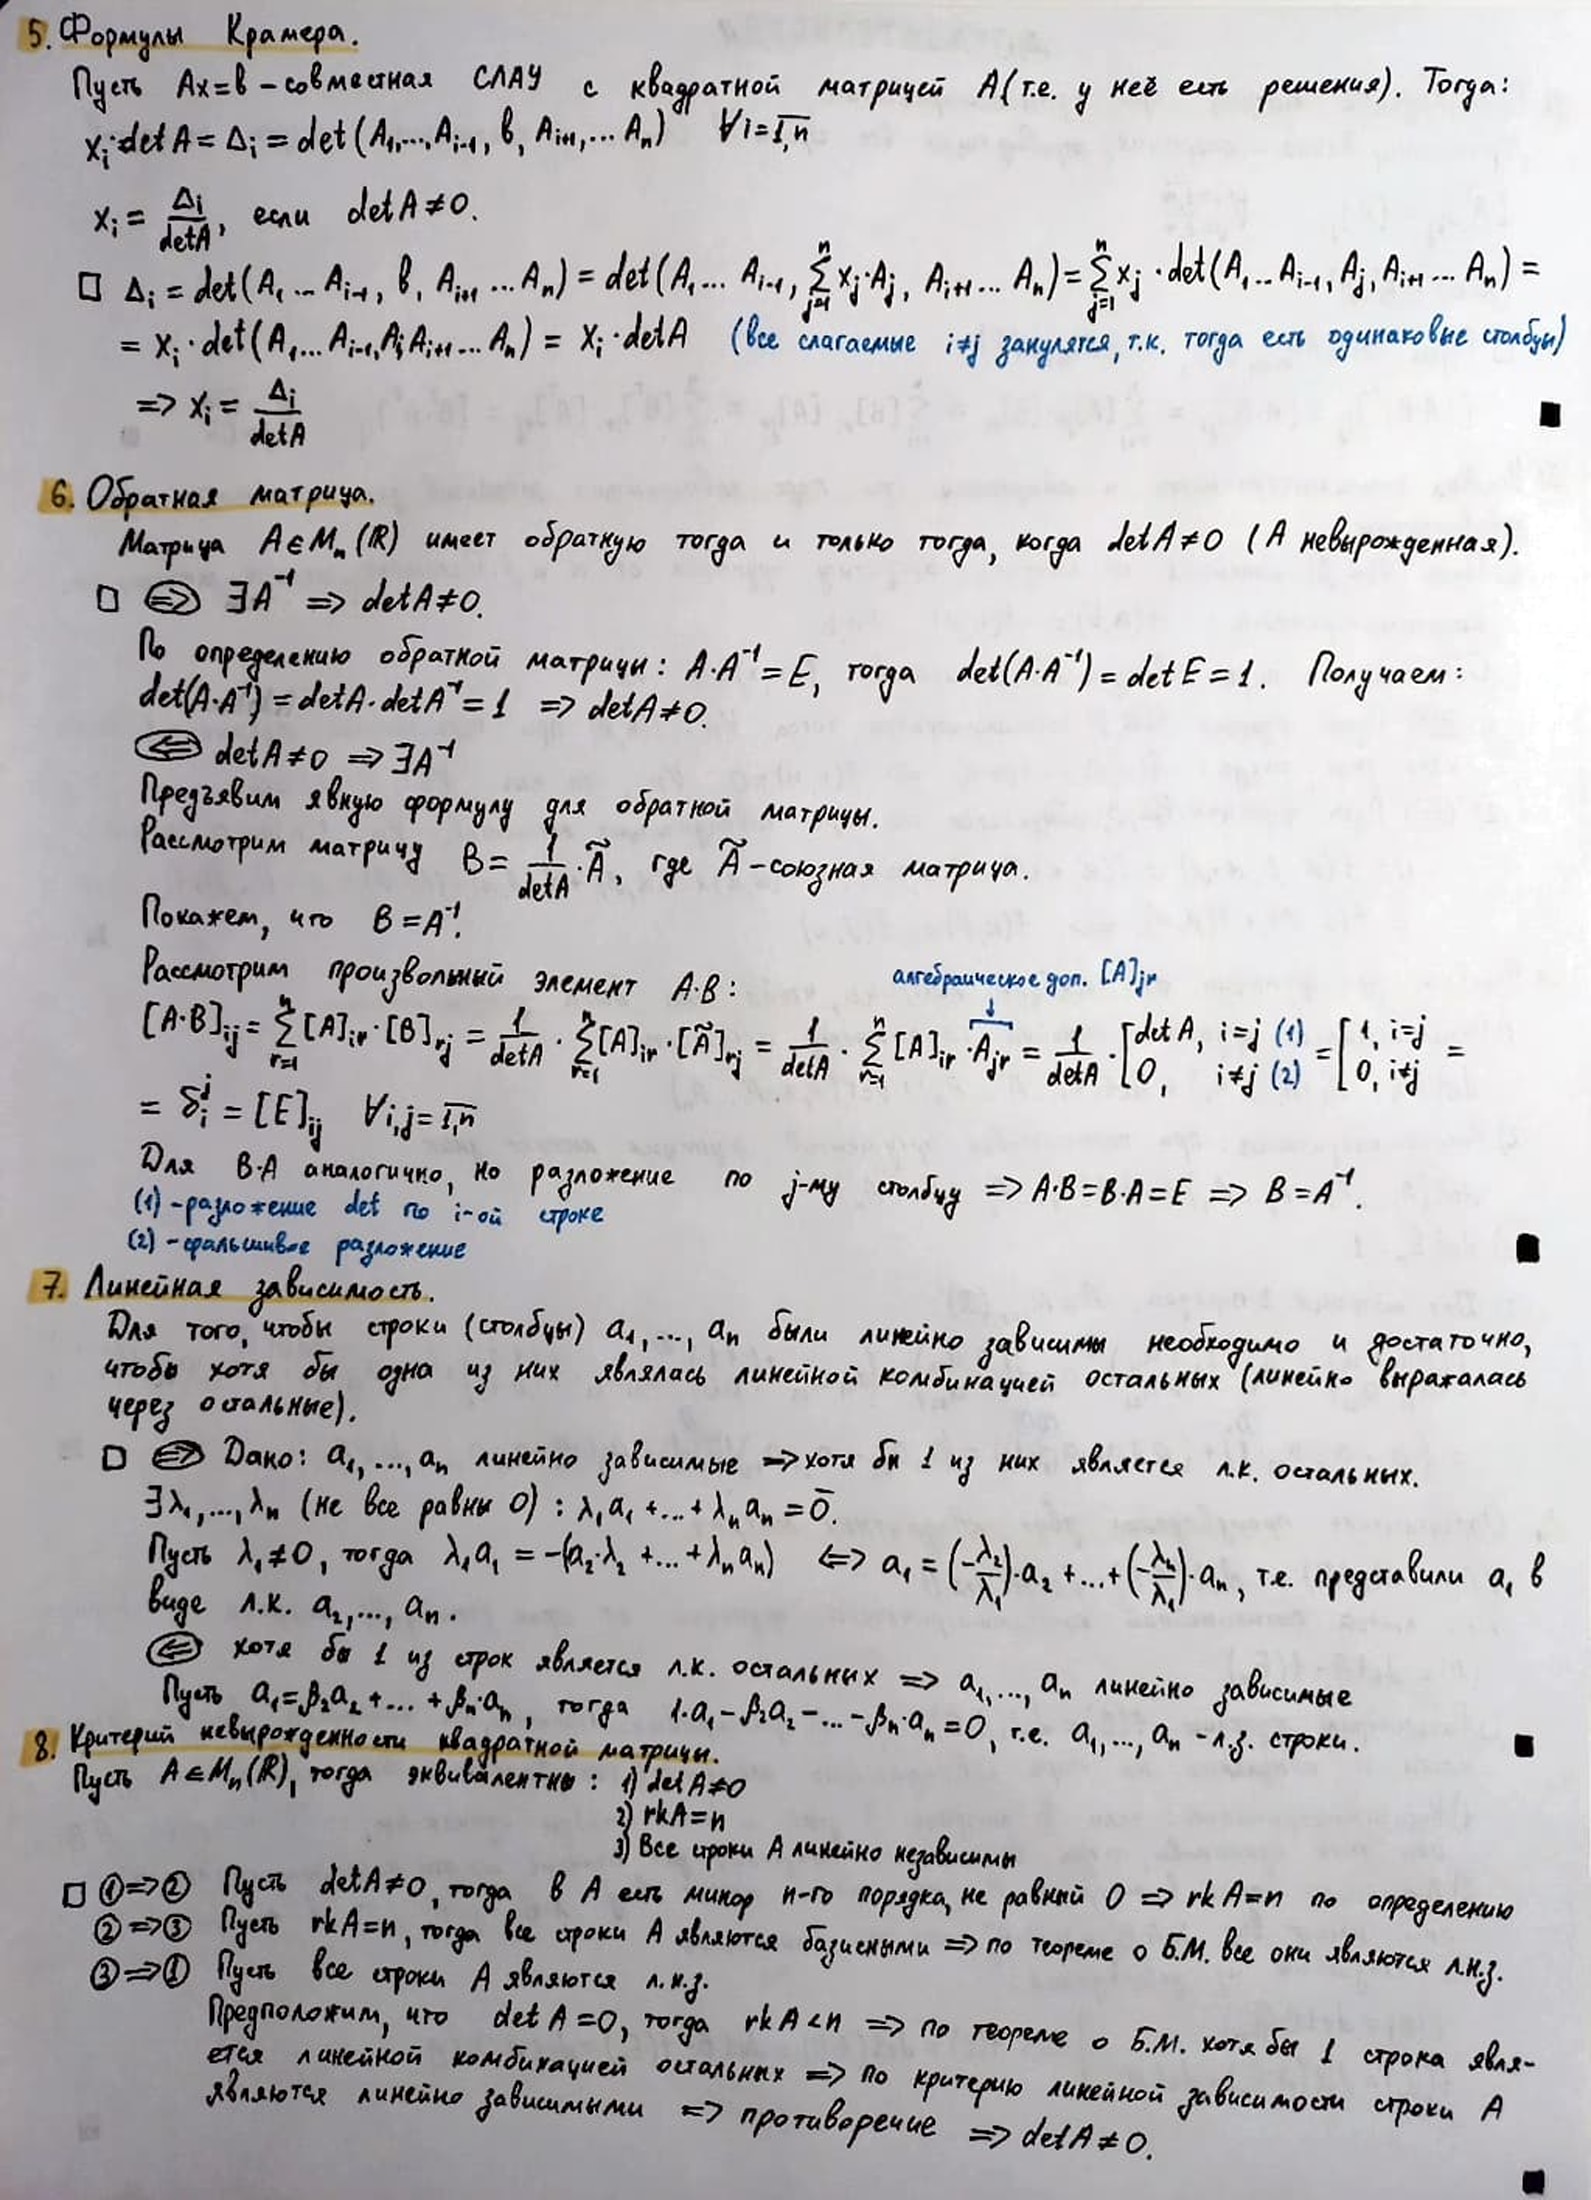 5. Формулы Крамера.
Пусть Ax=b – совместная СЛАУ с квадратной матрицей A (т.е. у неё есть решения). Тогда:
xᵢ·detA = Δᵢ = det(A₁,...,Aᵢ₋₁, b, Aᵢ₊₁,... Aₙ) ∀i=1,n
xᵢ = Δᵢ/detA, если detA≠0.
□ Δᵢ = det(A₁ ... Aᵢ₋₁, b, Aᵢ₊₁ ... Aₙ) = det(A₁... Aᵢ₋₁, ∑ⁿⱼ₌₁ xⱼ·Aⱼ, Aᵢ₊₁... Aₙ) = ∑ⁿⱼ₌₁ xⱼ · det(A₁...Aᵢ₋₁, Aⱼ, Aᵢ₊₁... Aₙ) =
= xᵢ·det(A₁... Aᵢ₋₁,AᵢAᵢ₊₁... Aₙ) = xᵢ·detA (все слагаемые i≠j занулятся, т.к. тогда есть одинаковые столбцы)
=> xᵢ = Δᵢ/detA ■
6. Обратная матрица.
Матрица A∈Mₙ(ℝ) имеет обратную тогда и только тогда, когда detA≠0 (A невырожденная).
□ (=>) ∃A⁻¹ => detA≠0.
По определению обратной матрицы: A·A⁻¹=E, тогда det(A·A⁻¹) = det E = 1. Получаем:
det(A·A⁻¹) = detA·detA⁻¹ = 1 => detA≠0.
(<=) detA≠0 => ∃A⁻¹
Предъявим явную формулу для обратной матрицы.
Рассмотрим матрицу B = 1/detA · Ã, где Ã – союзная матрица.
Покажем, что B = A⁻¹.
Рассмотрим произвольный элемент A·B: алгебраическое доп. [A]ⱼᵣ
[A·B]ᵢⱼ = ∑ⁿᵣ₌₁ [A]ᵢᵣ·[B]ᵣⱼ = 1/detA · ∑ⁿᵣ₌₁ [A]ᵢᵣ·[Ã]ᵣⱼ = 1/detA · ∑ⁿᵣ₌₁ [A]ᵢᵣ·Aⱼᵣ = 1/detA · [detA, i=j (1) 0, i≠j (2) = [1, i=j 0, i≠j =
= δᵢʲ = [E]ᵢⱼ ∀i,j=1,n
Для B·A аналогично, но разложение по j-му столбцу => A·B=B·A=E => B=A⁻¹.
(1) – разложение det по i-ой строке
(2) – фальшивое разложение ■
7. Линейная зависимость.
Для того, чтобы строки (столбцы) a₁,..., aₙ были линейно зависимы необходимо и достаточно,
чтобы хотя бы одна из них являлась линейной комбинацией остальных (линейно выражалась
через остальные).
□ (=>) Дано: a₁,...,aₙ линейно зависимые => хотя бы 1 из них является л.к. остальных.
∃λ₁,...,λₙ (не все равны 0) : λ₁a₁ +...+ λₙaₙ = 0̄.
Пусть λ₁≠0, тогда λ₁a₁ = -(a₂·λ₂ +...+ λₙaₙ) <=> a₁ = (-λ₂/λ₁)·a₂ +...+ (-λₙ/λ₁)·aₙ, т.е. представили a₁ в
виде л.к. a₂,..., aₙ.
(<=) хотя бы 1 из строк является л.к. остальных => a₁,..., aₙ линейно зависимые
Пусть a₁=β₂a₂ +... + βₙ·aₙ, тогда 1·a₁ - β₂a₂ -... - βₙ·aₙ = 0, т.е. a₁,..., aₙ – л.з. строки. ■
8. Критерий невырожденности квадратной матрицы.
Пусть A∈Mₙ(ℝ), тогда эквивалентны: 1) detA≠0
2) rkA=n
3) Все строки A линейно независимы
□ ①=>② Пусть detA≠0, тогда в A есть минор n-го порядка, не равный 0 => rkA=n по определению
②=>③ Пусть rkA=n, тогда все строки A являются базисными => по теореме о Б.М. все они являются л.н.з.
③=>① Пусть все строки A являются л.н.з.
Предположим, что detA=0, тогда rkA<n => по теореме о Б.М. хотя бы 1 строка явля-
ется линейной комбинацией остальных => по критерию линейной зависимости строки A
являются линейно зависимыми => противоречие => detA≠0. ■